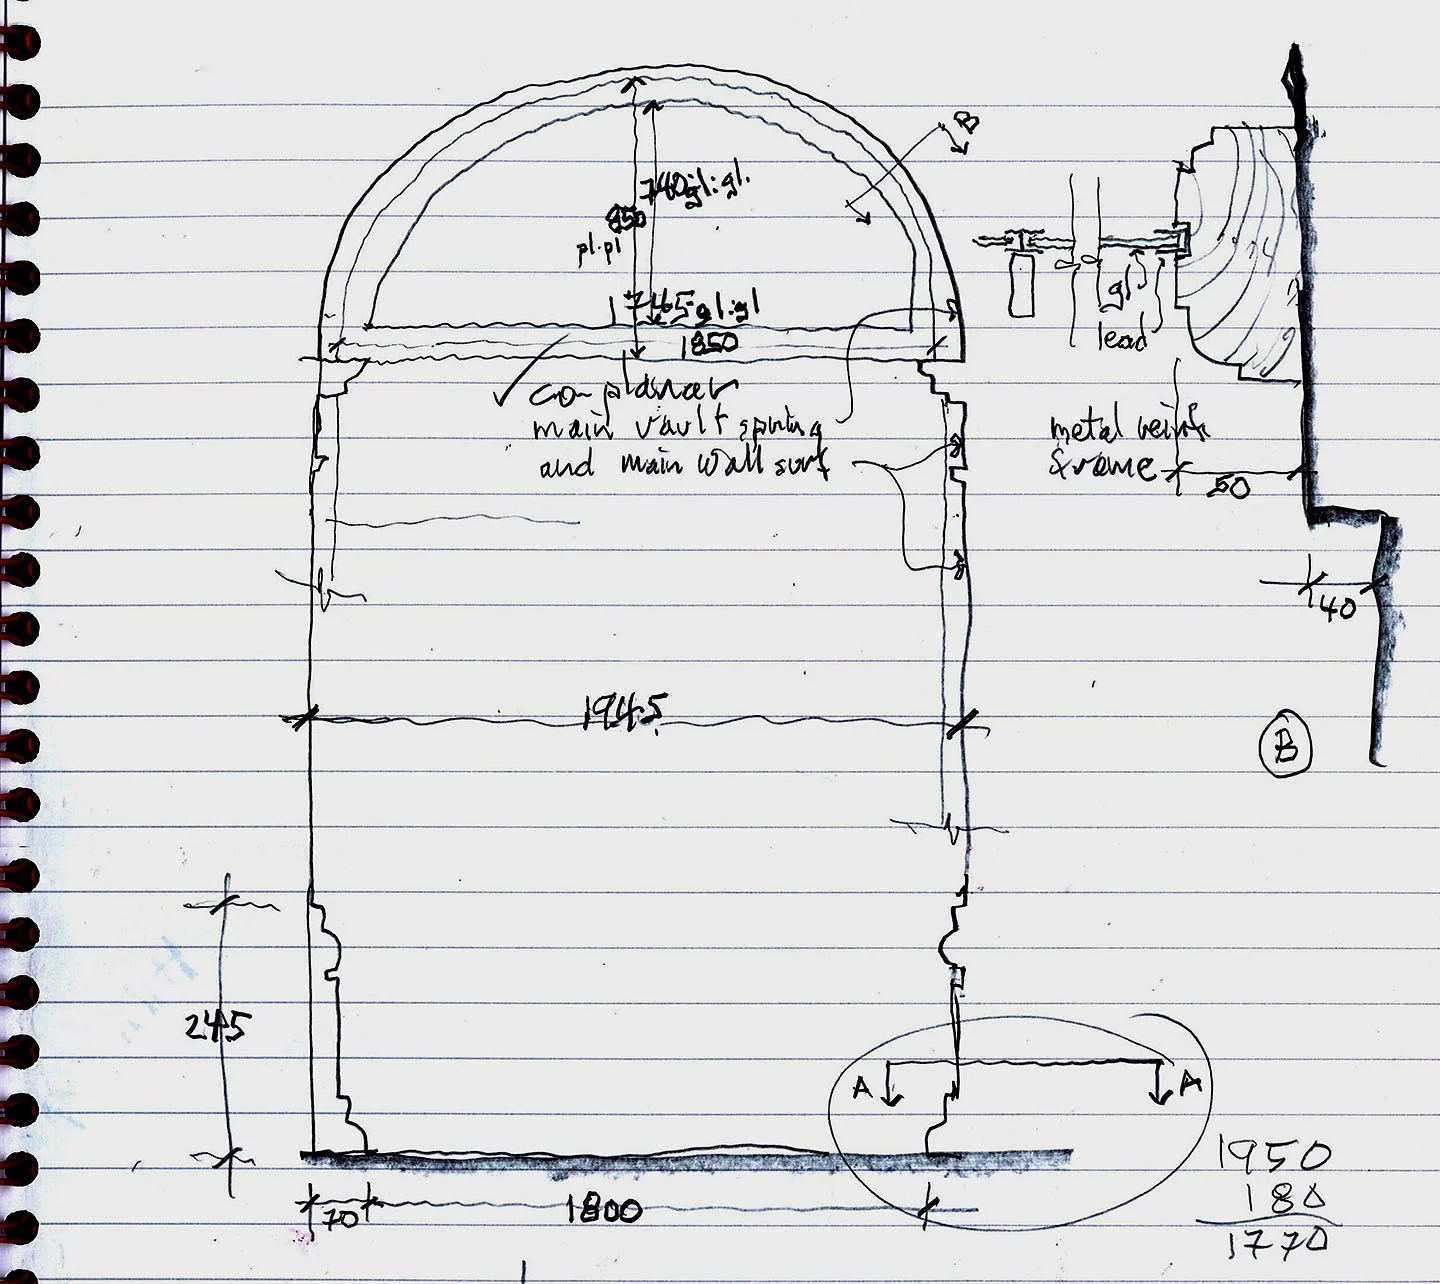 B
740 gl.gl.
850
pl.pl
1745 gl.gl
1850
gl
lead
main vault spring
and main wall surf
metal reinf
frame
50
40
1945
B
245
A A
1950
180
1770
70 1800